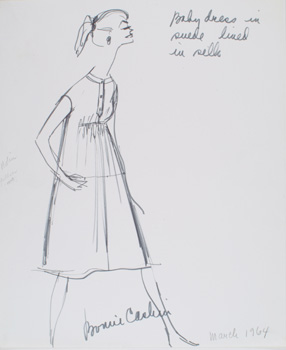 Baby dress in
suede lined
in silk
Bonnie Cashin
March 1964